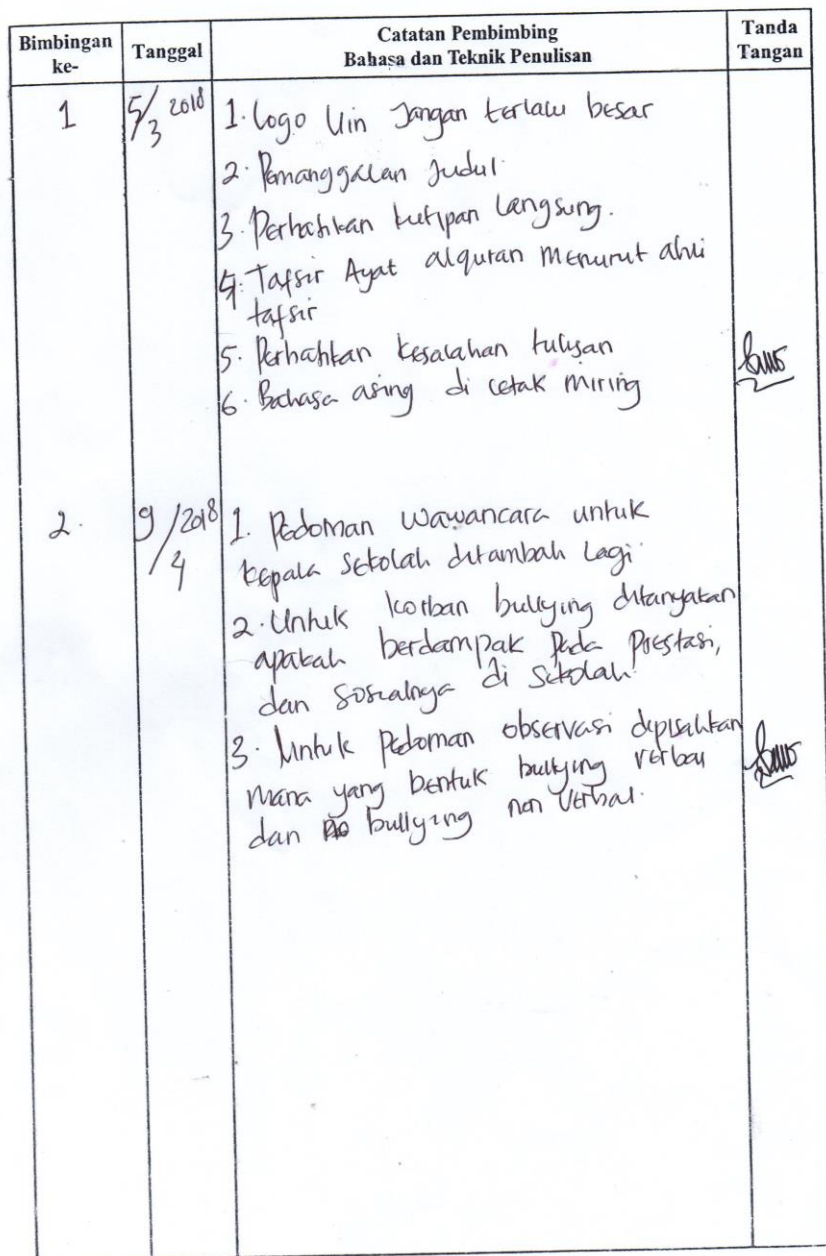 Bimbingan ke-
Tanggal
Catatan Pembimbing
Bahasa dan Teknik Penulisan
Tanda Tangan
1
5/3 2018
1. Logo Uin Jangan terlalu besar
2. Pemanggalan Judul.
3. Perhatikan kutipan langsung.
4. Tafsir Ayat alquran menurut ahli
tafsir
5. Perhatikan kesalahan tulisan
6. Bahasa asing di cetak miring
2.
9/4 2018
1. Pedoman wawancara untuk
kepala sekolah ditambah lagi
2. Untuk korban bullying ditanyakan
apakah berdampak pada Prestasi,
dan sosialnya di sekolah.
3. Untuk Pedoman observasi dipisahkan
mana yang bentuk bullying verbal
dan bullying non verbal.